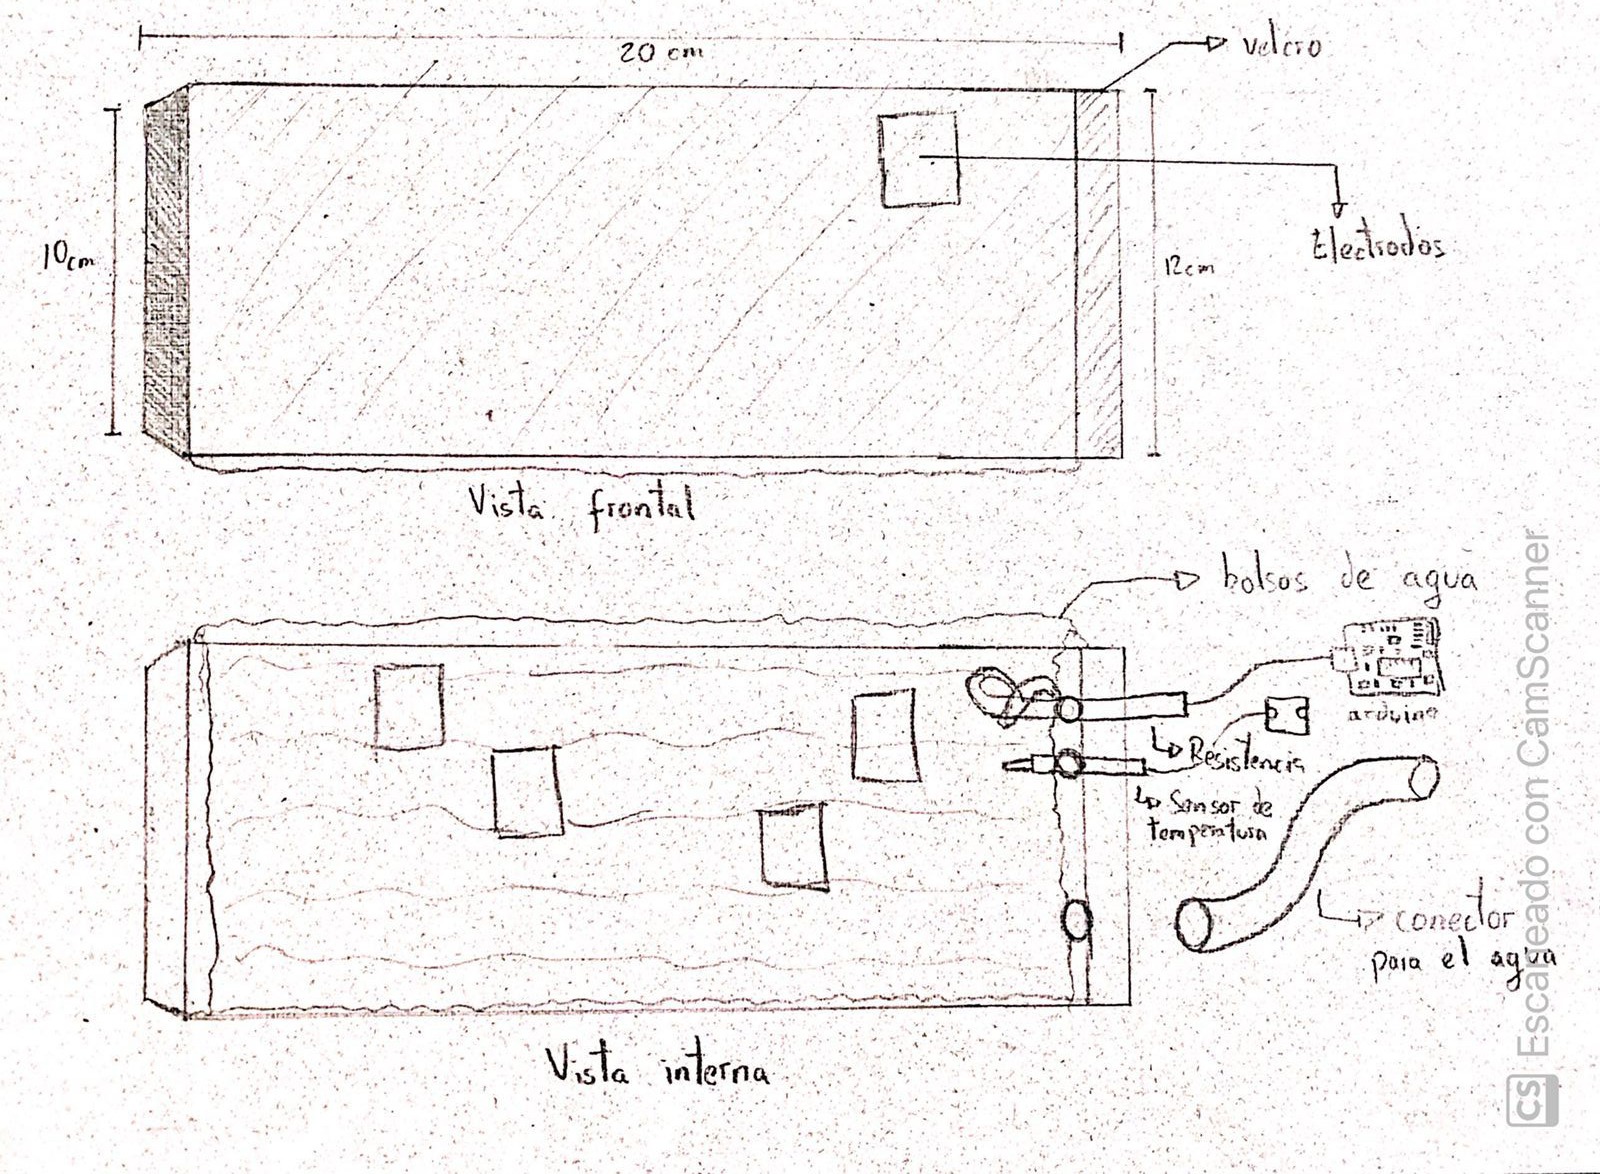 20 cm
velcro
10cm
12cm
Electrodos
Vista frontal
bolsos de agua
arduino
Resistencia
Sensor de
temperatura
conector
para el agua
Vista interna
CS Escaneado con CamScanner